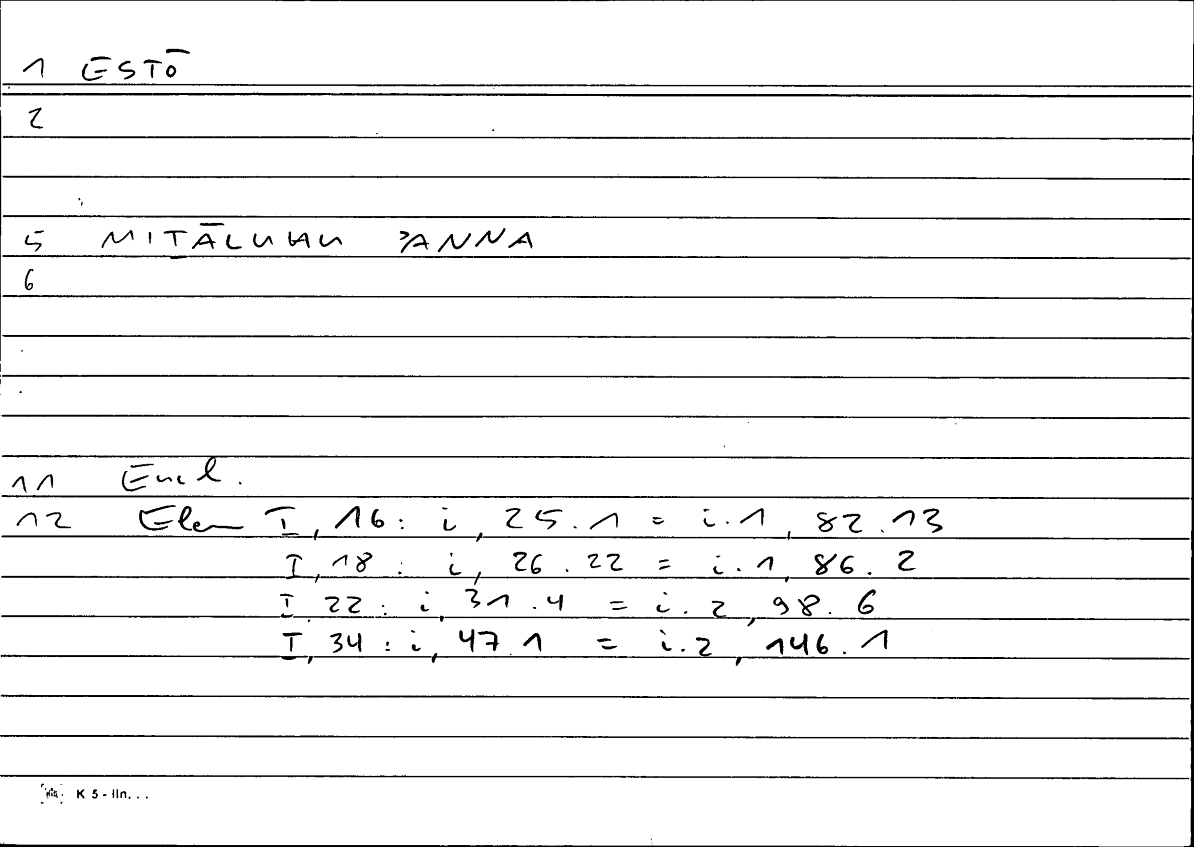 1 ESTŌ
2
5 MITĀLUHU ʾANNA
6
11 Eucl.
12 Elem I, 16: i, 25.1 = i.1, 82.13
I, 18: i, 26.22 = i.1, 86.2
I, 22: i, 31.4 = i.2, 98.6
I, 34: i, 47.1 = i.2, 146.1
K 5 - lln...